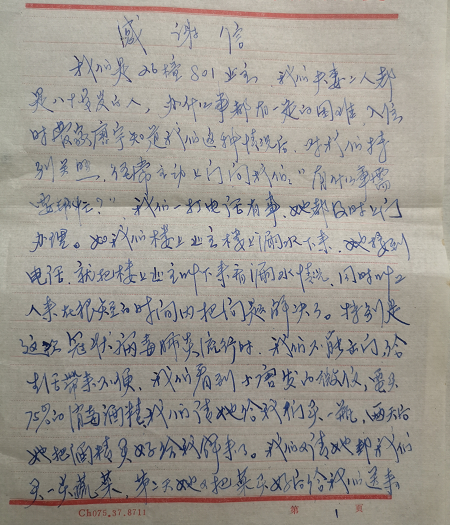 感谢信
我们是26楼801业主，我们夫妻二人都
是八十多岁的人，办什么事都有一定的困难，入住
时管家唐宇知道我们这种情况后，对我们特
别关照，经常主动上门问我们："有什么事需
要帮忙？"我们一打电话有事，她都及时上门
办理。如我们楼上业主楼上漏水下来，她接到
电话，就把楼上业主叫下来看漏水情况，同时叫工
人来在很短的时间内把问题解决了。特别是
这次冠状病毒肺炎流行时，我们不能出门给
生活带来不便，我们看到 客发的微信，要买
75%的消毒酒精我们请她给我们买一瓶，两天后
她把酒精买好给我们拿来了。我们又请她帮我们
买一些蔬菜，第二天她又把菜买好后给我们送来
Ch075.37.8711
第 1 页